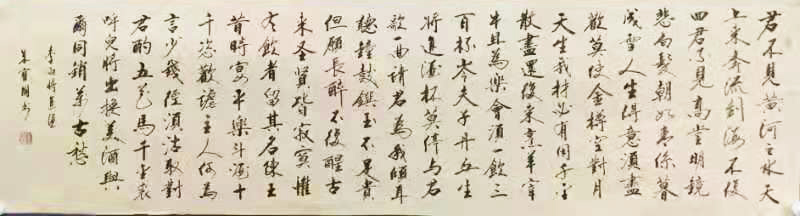 君不見黄河之水天
上來奔流到海不復
回君不見高堂明鏡
悲白髮朝如青絲暮
成雪人生得意須盡
歡莫使金樽空對月
天生我材必有用千金
散盡還復來烹羊宰
牛且為樂會須一飲三
百杯岑夫子丹丘生
將進酒杯莫停與君
歌一曲請君為我傾耳
聽鐘鼓饌玉不足貴
但願長醉不復醒古
来圣賢皆寂寞惟
有飲者留其名陳王
昔時宴平樂斗酒十
千恣歡謔主人何為
言少錢徑須沽取對
君酌五花馬千金裘
呼兒將出換美酒與
爾同銷萬古愁
李白將進酒